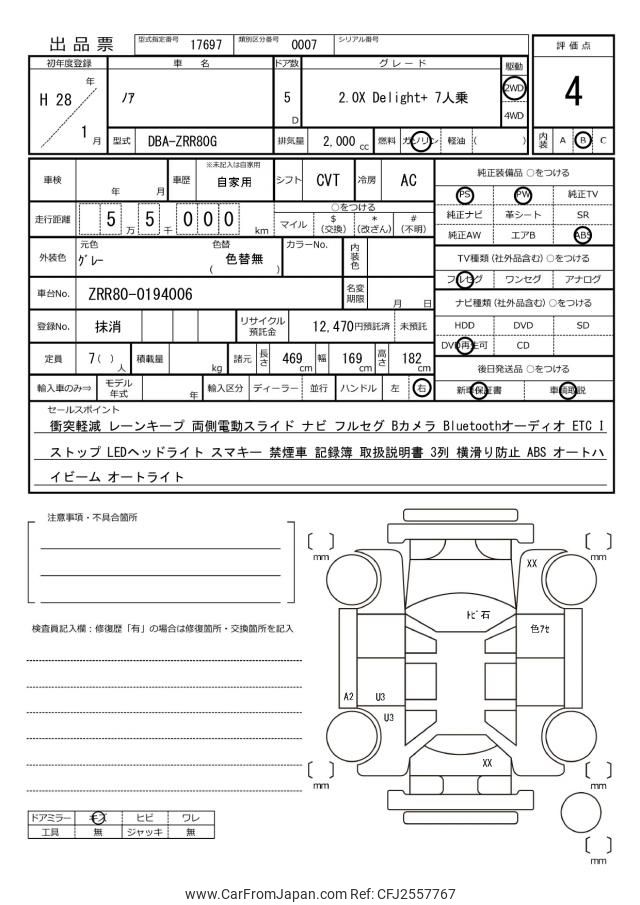 出品票 型式指定番号 17697 類別区分番号 0007 シリアル番号
評価点
初年度登録 車名 ドア数 グレード 駆動
H 28 年 ノア 5 D 2.0X Delight+ 7人乗 2WD 4
1 月 4WD
型式 DBA-ZRR80G 排気量 2,000 cc 燃料 ガソリン 軽油 ( ) 内装 A B C
車検 年 月 車歴 ※未記入は自家用 自家用 シフト CVT 冷房 AC
純正装備品 ○をつける
PS PW 純正TV
走行距離 5 5 万 千 0 0 0 km ○をつける
マイル $(交換) *(改ざん) #(不明)
純正ナビ 革シート SR
純正AW エアB ABS
外装色 元色 グレー 色替 ( 色替無 ) カラーNo. 内装色
TV種類(社外品含む) ○をつける
フルセグ ワンセグ アナログ
車台No. ZRR80-0194006 名変期限 月 日
ナビ種類(社外品含む) ○をつける
登録No. 抹消 リサイクル預託金 12,470円預託済 未預託
HDD DVD SD
DVD再生可 CD
定員 7( )人 積載量 kg 諸元 長さ 469cm 幅 169cm 高さ 182cm
後日発送品 ○をつける
輸入車のみ⇒ モデル年式 年 輸入区分 ディーラー 並行 ハンドル 左 右
新車保証書 車輌取説
セールスポイント
衝突軽減 レーンキープ 両側電動スライド ナビ フルセグ Bカメラ Bluetoothオーディオ ETC I
ストップ LEDヘッドライト スマキー 禁煙車 記録簿 取扱説明書 3列 横滑り防止 ABS オートハ
イビーム オートライト
注意事項・不具合箇所
mm
mm
XX
トビ石
色アセ
検査員記入欄:修復歴「有」の場合は修復箇所・交換箇所を記入
A2 U3
U3
XX
mm
mm
ドアミラー キズ ヒビ ワレ
工具 無 ジャッキ 無
mm
www.CarFromJapan.com Ref: CFJ2557767